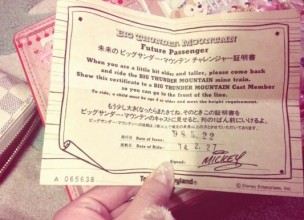 BIG THUNDER MOUNTAIN
Future Passenger
未来のビッグサンダー・マウンテン チャレンジャー証明書
When you are a little bit older and taller, please come back
and ride the BIG THUNDER MOUNTAIN mine train.
Show this certificate to a BIG THUNDER MOUNTAIN Cast Member
so you can go to the front of the line.
To ride, a child must be 3 or older and meet the height requirement.
もう少し大きくなったらまたきてね。そのときこの証明書を
ビッグサンダー・マウンテンのキャストに見せると、列の1ばん前にいけるよ。
Signed:
MICKEY
A 065638
© Disney Enterprises, Inc.